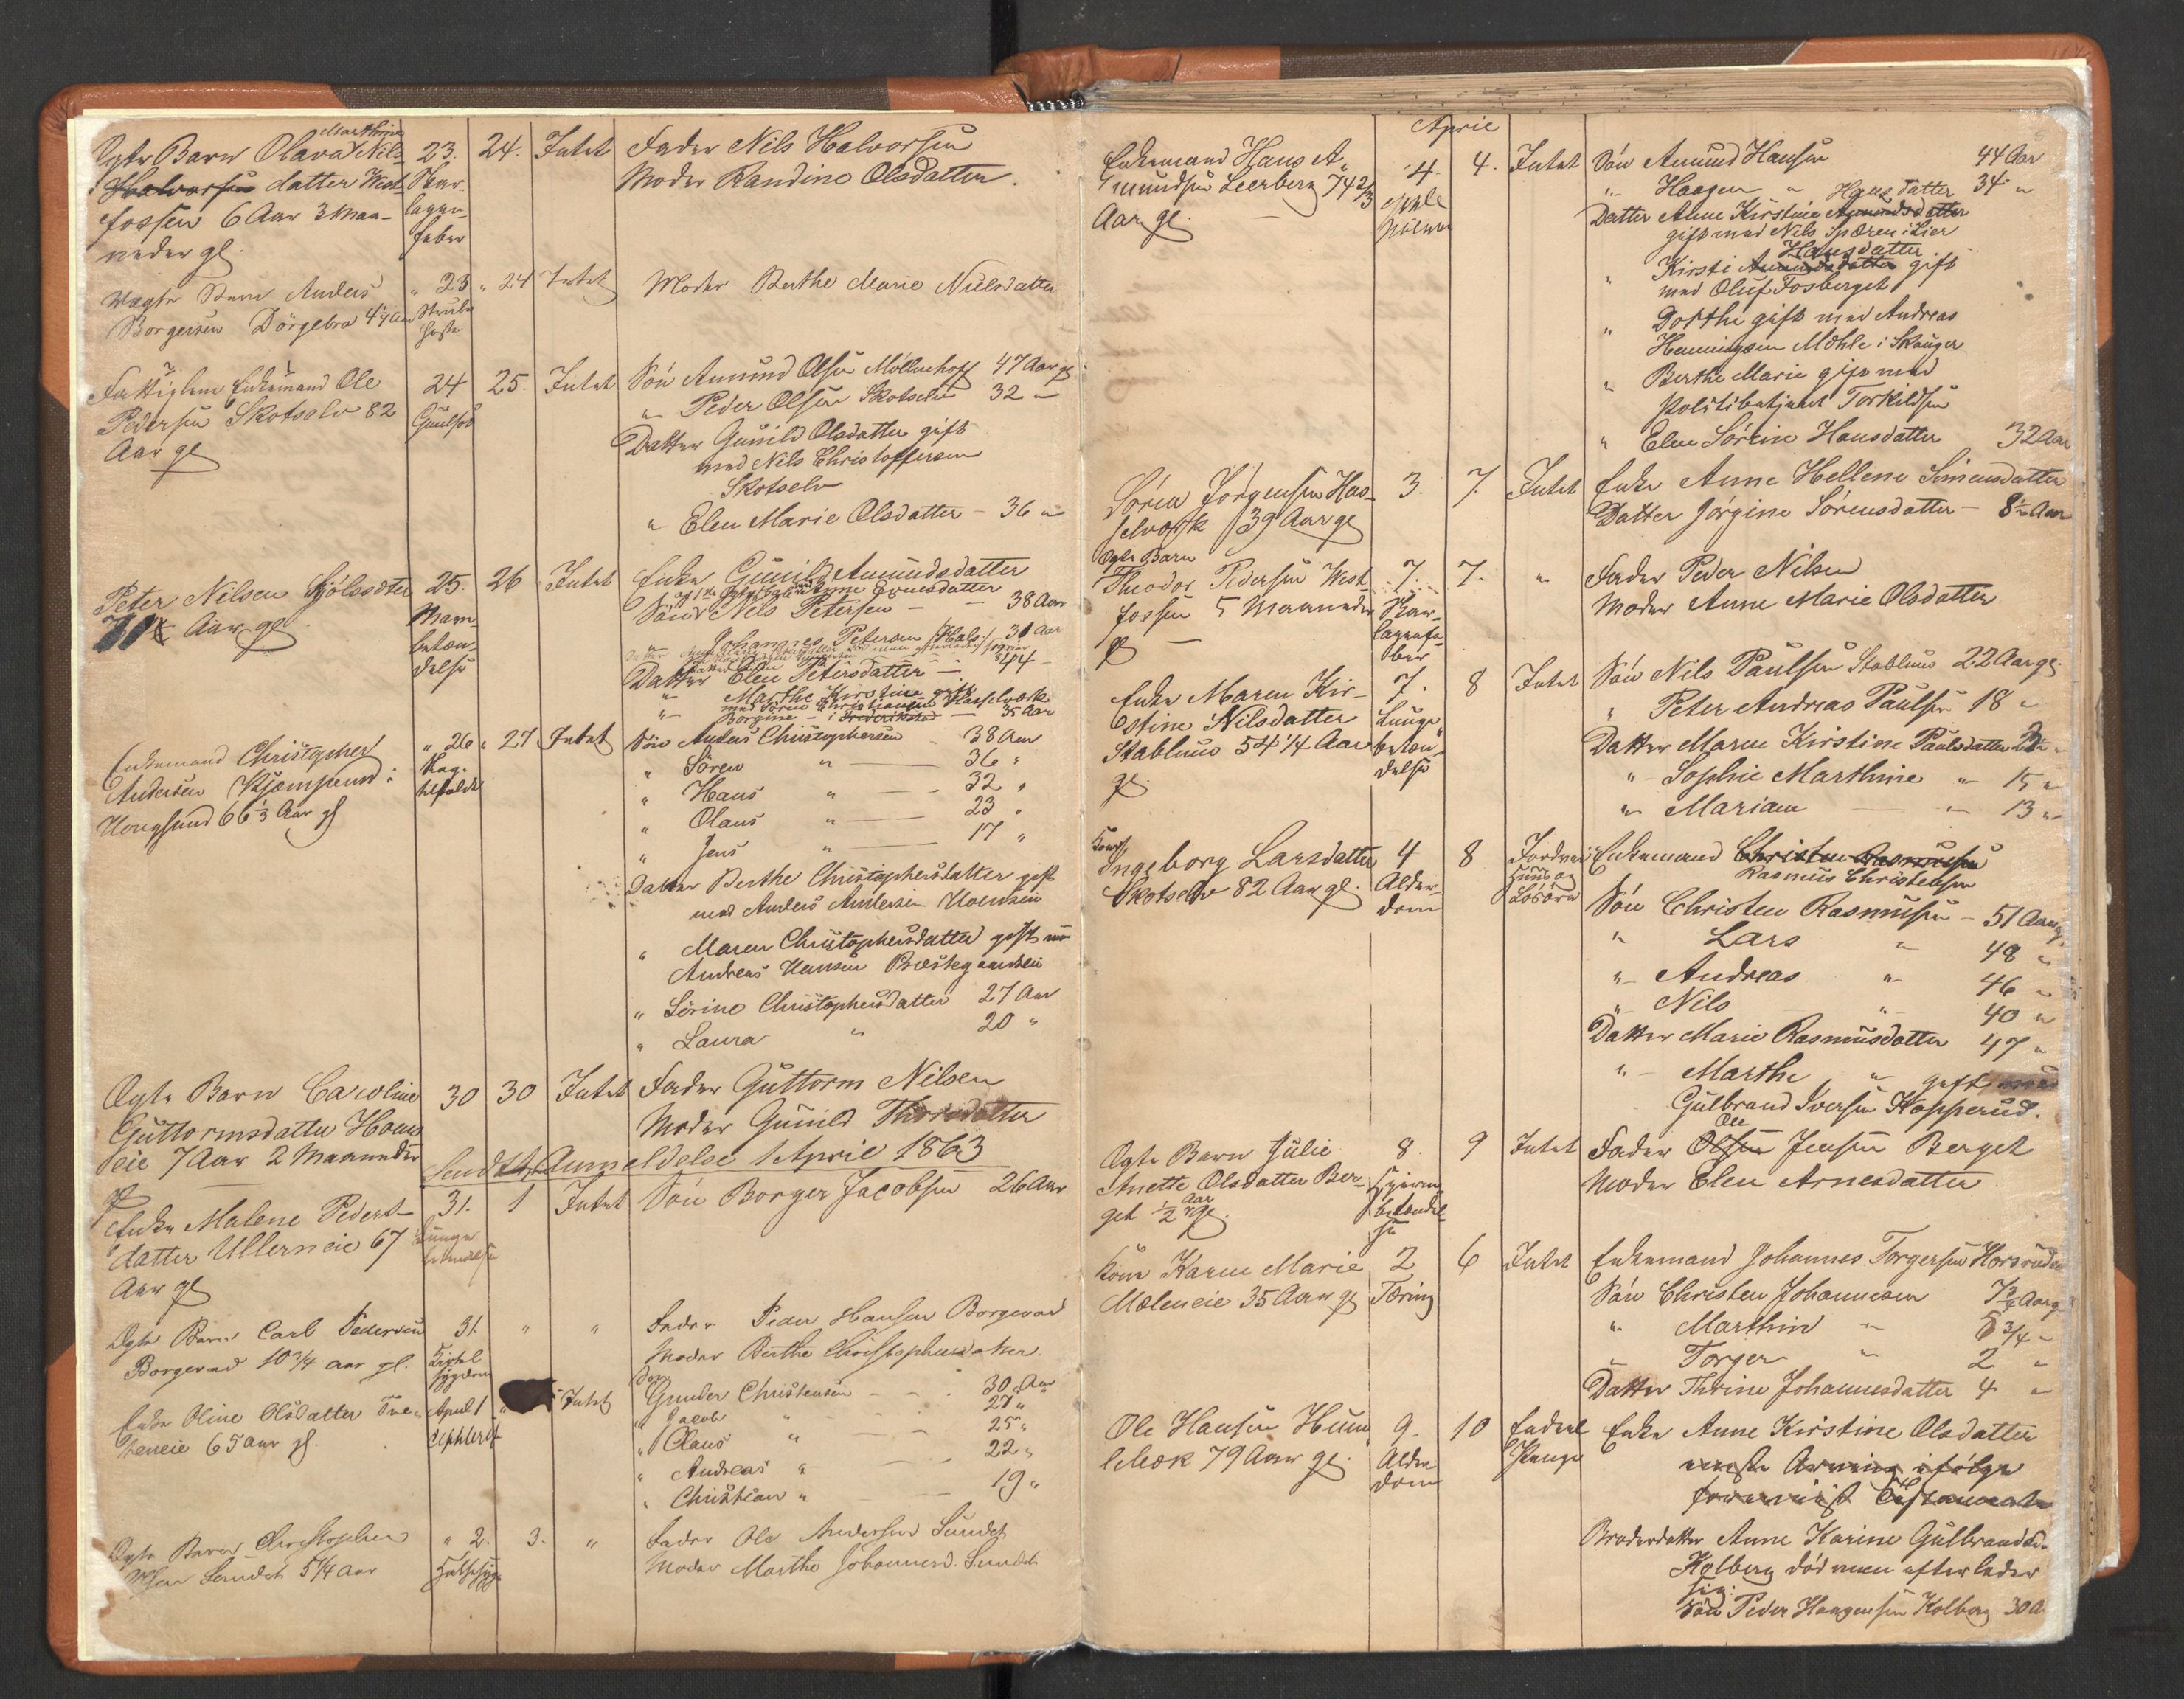 Ægte Barn Olava Marthine Nils-
Halvorsen datter West-
fossen 6 Aar 3 Maa-
neder gl.
23.
Skar-
lagen-
feber
24.
Intet
Fader Nils Halvorsen
Moder Randine Olsdatter.
Uægte Barn Anders
Borgersen Dörgebro 4 1/4 Aar
" 23
Strube
hoste
" 24
Intet
Moder Berthe Marie Nielsdatter
Fattiglem Enkemand Ole
Pedersen Skotselv 82
Aar gl
24
Guulsot
25.
Intet
Sön Amund Olsen Möllenhoff 47 Aar gl
" Peder Olsen Skotselv 32 "
Datter Gunild Olsdatter gift
med Nils Christoffersen
Skotselv
" Elen Marie Olsdatter - 36 "
Peter Nilsen
Aar gl
25.
26
Intet
Enke Gunild Amundsdatter
Sön Nils Petersen - 38 Aar
" Johannes Petersen /Hals:/ 31 Aar
Datter Elen Petersdatter - 44 -
" Marthe Kirstine gift
med Sören Christiansen Hasselværk
" Borgine - i Frederiksstad - 35 Aar
Enkemand Christopher
Andersen Kjæmperud i
Hougsund 66 1/3 Aar gl
" 26
" 27
Intet
Sön Anders Christophersen 38 Aar
" Sören " 36 "
" Hans " 32 "
" Olaus " 23 "
" Jens " 17 "
Datter Berthe Christophersdatter gift
med Anders Andersen Hoensein
" Maren Christophersdatter gift med
Andreas Hansen Præstegaardseie
" Sörine Christophersdatter 27 Aar
" Laura " 20 "
Ægte Barn Caroline
Guttormsdatter Hoens
eie 7 Aar 2 Maaneder
gl
30
30
Intet
Fader Guttorm Nilsen
Moder Gunild Thorsdatter
Sendt Anmeldelse 1 April 1863
Enke Malene Peders-
datter Ullerneie 67
Aar gl
31.
Lunge
betændelse
1
Intet
Sön Borger Jacobsen 26 Aar
Ægte Barn Carl Pedersen
Borgerud 10 3/4 Aar gl.
31.
Kirtel
sygdom
"
"
Fader Peder Hansen Borgerud
Moder Berthe Christophersdatter
Enke Oline Olsdatter Tve-
teneie 65 Aar gl.
April 1
Intet
Sön
Gunder Christensen - - 30 Aar
" Jacob " 27 "
" Claus " 25 "
" Andreas " 22 "
" Christian " 19 "
Ægte Barn Christopher
Olsen Sundet 5 1/4 Aar
" 2.
Halssyge
3.
"
Fader Ole Andersen Sundet
Moder Marthe Johannesd. Sundet
April
Enkemand Hans A-
mundsen Leerberg 74 2/3
Aar gl.
4.
4.
Intet
Sön Amund Hansen 44 Aar
" Haagen " 34 "
Hansdatter
Datter Anne Kirstine Amundsdatter
gift med Nils Spæren i Lier
Hansdatter
" Kirsti Amundsdatter gift
med Oluf Fosberget
" Dorthe gift med Andreas
Henningsen Mæhle i Skauger
" Berthe Marie gift med
Politibetjent Torkildsen
" Elen Sörine Hansdatter 32 Aar
Sören Jörgensen Has-
selværk 39 Aar gl
3.
7.
Intet
Enke Anne Hellene Simensdatter
Datter Jörgine Sörensdatter - 8 1/2 Aar
Ægte Barn
Theodor Pedersen West
fossen 5 Maaneder
gl
7.
Skar-
lagensfe-
ber
7.
"
Fader Peder Nilsen
Moder Anne Marie Olsdatter
Enke Maren Kir-
stine Nilsdatter
Stablum 54 1/4 Aar
gl
7.
Lunge
betæn-
delse
8
Intet
Sön Nils Paulsen Stablum 22 Aar gl.
" Peter Andreas Paulsen 18 "
Datter Maren Kirstine Paulsdatter
" Sophie Marthine " 15 "
" Mariane " 13 "
Kone
Ingeborg Larsdatter
Skotselv 82 Aar gl.
4
Alder-
dom
8
Jordvei
Huus og
Lösöre
Enkemand Christen Rasmussen
Rasmus Christensen
Sön Christen Rasmussen - 51 Aar gl.
" Lars " 48 "
" Andreas " 46 "
" Nils " 40 "
Datter Marie Rasmusdatter 47 "
" Marthe " gift med
Gulbrand Iversen Hopperud.
Ægte Barn Julie
Anette Olsdatter Ber-
get 1/2 Aar gl.
8.
Hjerne
betændel-
se
9
Intet
Ole
Fader Olsen Jensen Berget
Moder Elen Arnesdatter
Kone Karen Marie
Mæleneie 35 Aar gl
2
Tæring
6
Intet
Enkemand Johannes Torgersen Horsruden
Sön Christen Johannesen 7 3/4 Aar gl
" Marthin " 5 3/4 "
" Torger " 2 "
Datter Thrine Johannesdatter 4 "
Ole Hansen Hum-
lebæk 79 Aar gl.
9.
Alder
dom
10
Endeel
Penge
Enke Anne Kirstine Olsdatter
eneste Arving ifølge
foreviist Testamente
Broderdatter Anne Karine Gulbrandsd.
Holberg död men efterlader
sig:
Sön Peder Haagensen Kolberg 30 A